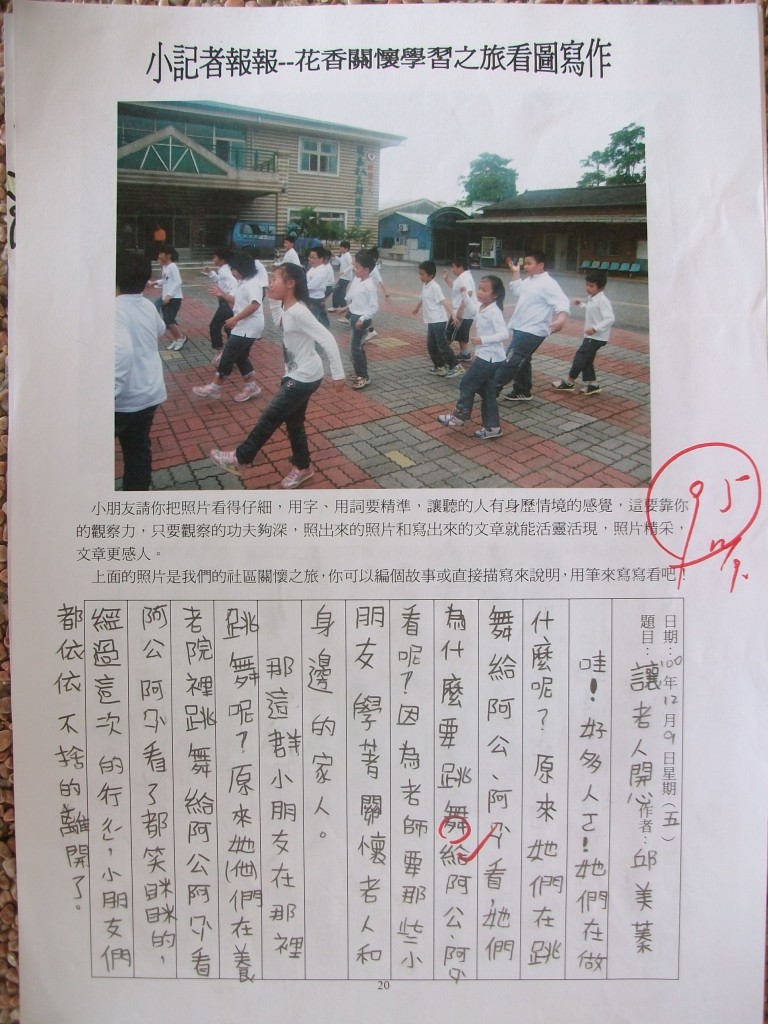 小記者報報--花香關懷學習之旅看圖寫作
小朋友請你把照片看得仔細，用字、用詞要精準，讓聽的人有身歷情境的感覺，這要靠你
的觀察力，只要觀察的功夫夠深，照出來的照片和寫出來的文章就能活靈活現，照片精采，
文章更感人。
上面的照片是我們的社區關懷之旅，你可以編個故事或直接描寫來說明，用筆來寫寫看吧！
95
日期：100年12月9日星期（五）
題目：讓老人開心 作者：邱美蓁
哇！好多人ㄛ！她們在做
什麼呢？原來她們在跳
舞給阿公、阿ㄇㄚˋ看，她們
為什麼要跳舞給阿公、阿ㄇㄚˋ
看呢？因為老師要那些小
朋友學著關懷老人和
身邊的家人。
那這群小朋友在那裡
跳舞呢？原來她(他)們在養
老院裡跳舞給阿公阿ㄇㄚˋ看
阿公阿ㄇㄚˋ看了都笑眯眯的，
經過這次的行ㄉㄨㄥˋ，小朋友們
都依依不捨的離開了。
20